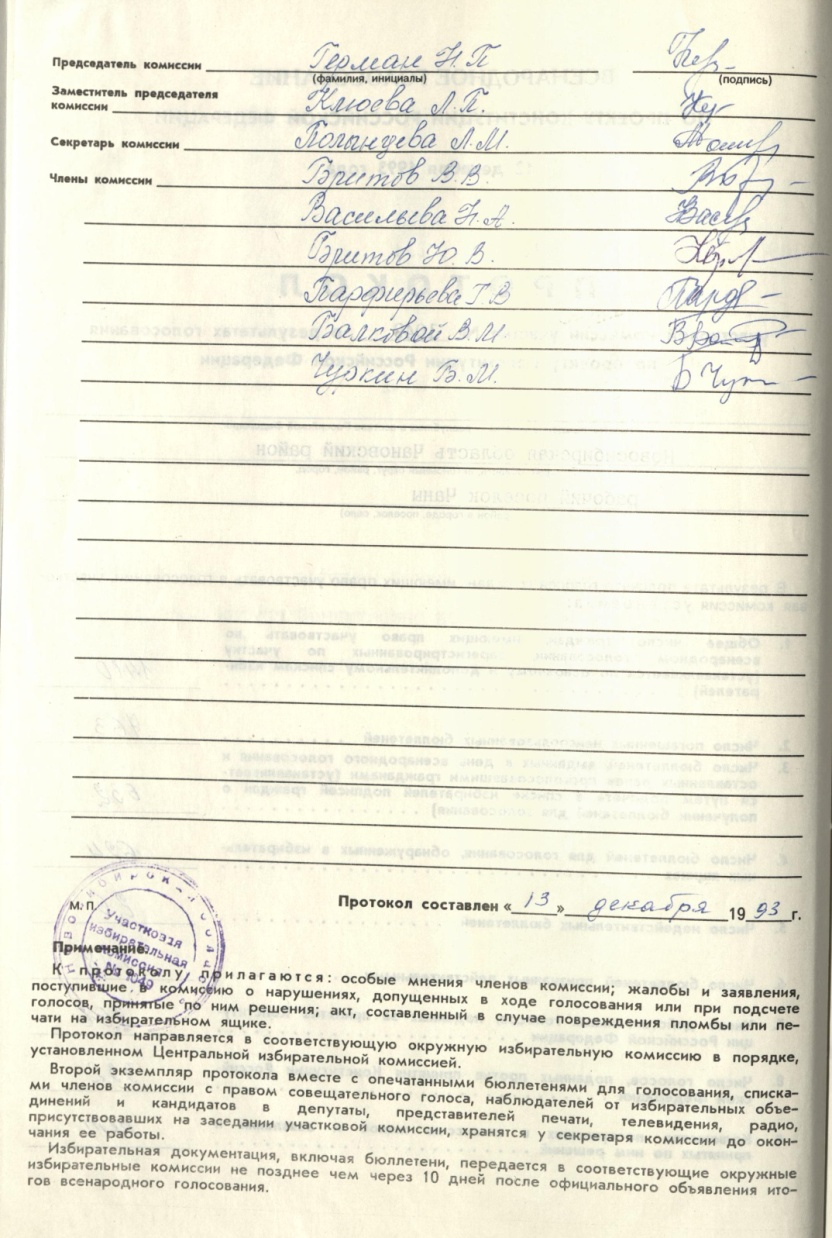 Председатель комиссии Герман Н.П
(фамилия, инициалы) (подпись)
Заместитель председателя
комиссии Клюева Л.П.
Секретарь комиссии Полынцева Л.М.
Члены комиссии Бритов В.В.
Васильева Н.А.
Бритов Ю.В.
Парфирьева Г.В
Балковой В.М.
Чуркин Б.М.
М. П.
Протокол составлен «13» декабря 1993 г.
Участковая
избирательная
комиссия
Примечание.
К протоколу прилагаются: особые мнения членов комиссии; жалобы и заявления,
поступившие в комиссию о нарушениях, допущенных в ходе голосования или при подсчете
голосов, принятые по ним решения; акт, составленный в случае повреждения пломбы или пе-
чати на избирательном ящике.
Протокол направляется в соответствующую окружную избирательную комиссию в порядке,
установленном Центральной избирательной комиссией.
Второй экземпляр протокола вместе с опечатанными бюллетенями для голосования, списка-
ми членов комиссии с правом совещательного голоса, наблюдателей от избирательных объе-
динений и кандидатов в депутаты, представителей печати, телевидения, радио,
присутствовавших на заседании участковой комиссии, хранятся у секретаря комиссии до окон-
чания ее работы.
Избирательная документация, включая бюллетени, передается в соответствующие окружные
избирательные комиссии не позднее чем через 10 дней после официального объявления ито-
гов всенародного голосования.